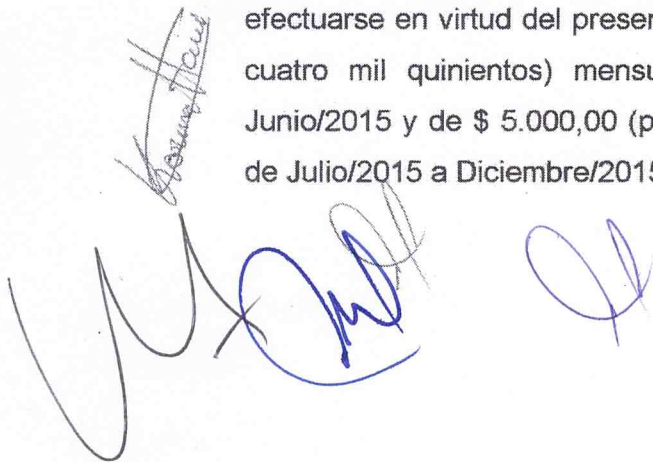 efectuarse en virtud del presen
cuatro mil quinientos) mensu
Junio/2015 y de $ 5.000,00 (p
de Julio/2015 a Diciembre/2015